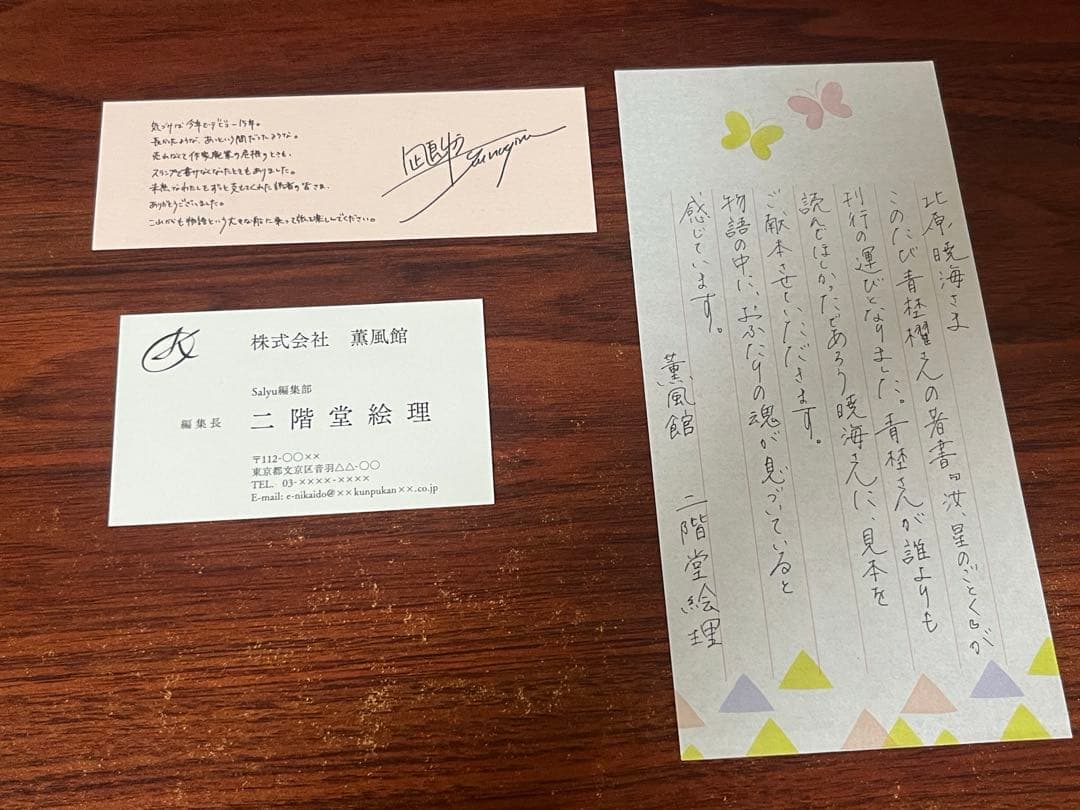 気づけば今年でデビュー15年。
長かったような、あっという間だったような。
売れなくて作家廃業の危機のときも、
スランプで書けなくなったときもありました。
未熟なわたしをずっと支えてくれた読者の皆さま、
ありがとうございました。
これからも物語という大きな船に乗って旅を楽しんでください。
凪良ゆう
株式会社 薫風館
Salyu編集部
編集長 二階堂絵理
〒112-○○××
東京都文京区音羽△△-○○
TEL. 03-××××-××××
E-mail: e-nikaido@××kunpukan××.co.jp
北原暁海さま
このたび青埜櫂さんの著書『汝、星のごとく』が
刊行の運びとなりました。青埜さんが誰よりも
読んでほしかったであろう暁海さんに、見本を
ご献本させていただきます。
物語の中に、おふたりの魂が息づいていると
感じています。
薫風館 二階堂絵理